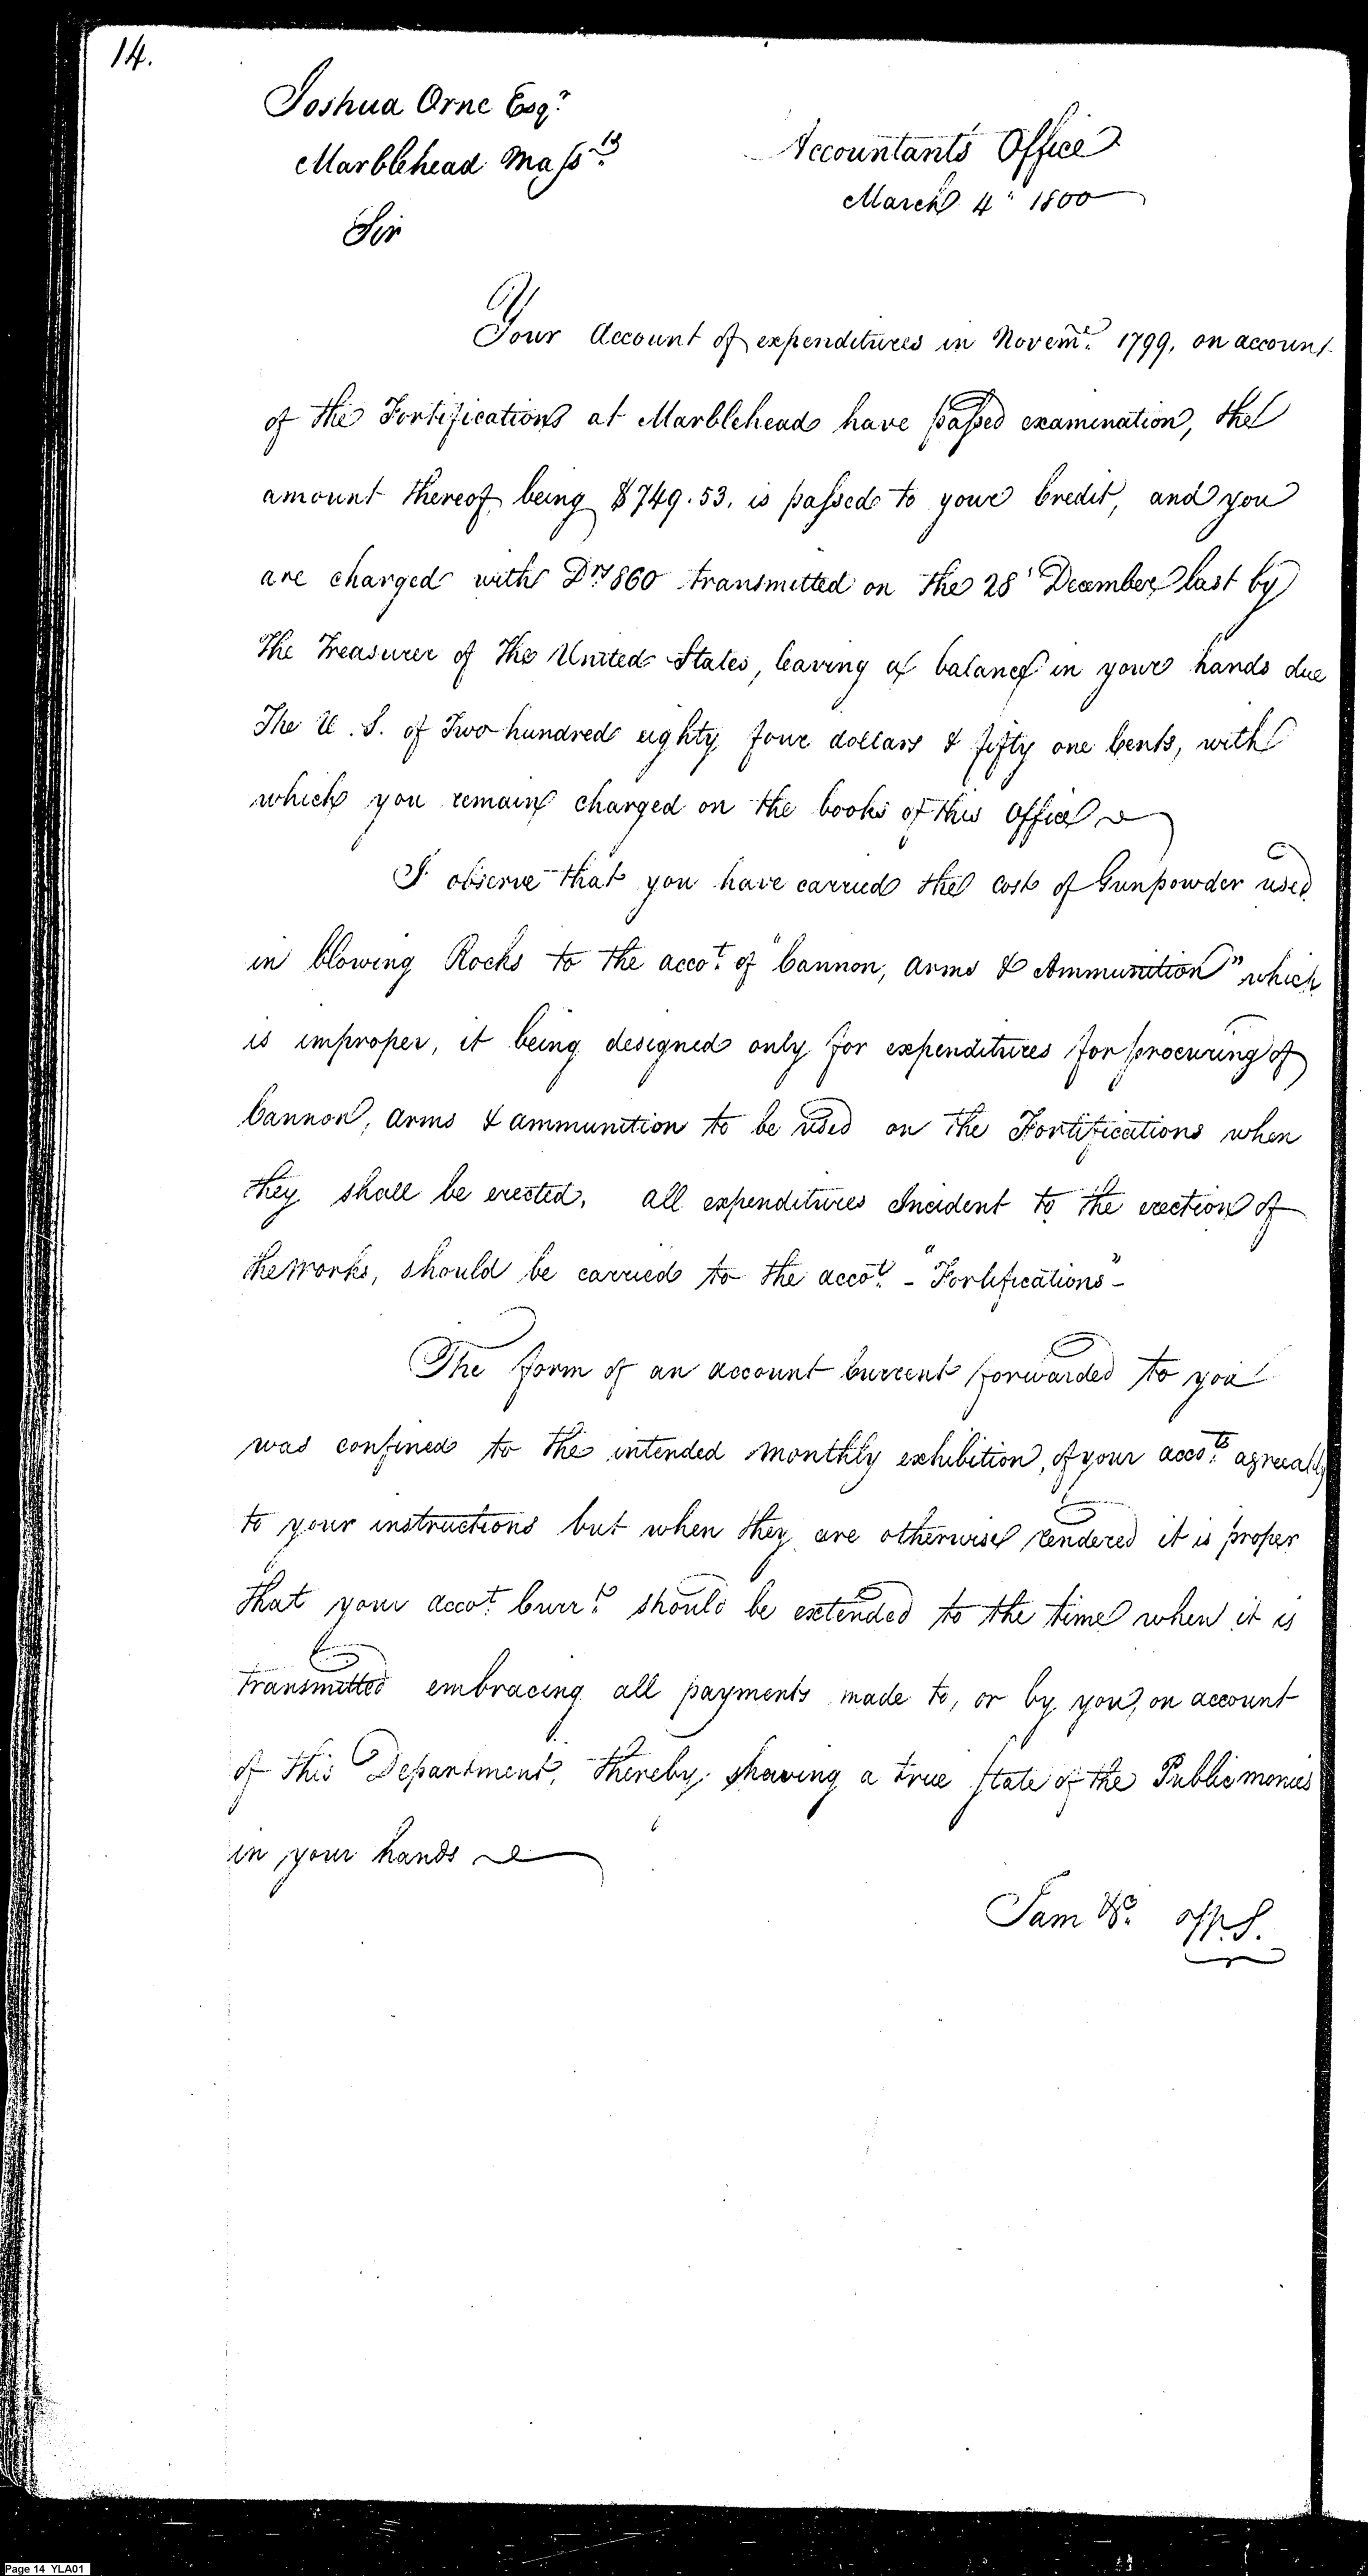 14.
Joshua Orne Esqr.
Marblehead Massts.
Accountants Office
March 4th 1800
Sir
Your Account of expenditures in Novemr. 1799, on account
of the Fortifications at Marblehead have passed examination, the
amount thereof being $749.53. is passed to your Credit, and you
are charged with Drs 860 transmitted on the 28t December last by
the Treasurer of the United States, leaving a balance in your hands due
the U. S. of Two hundred eighty four dollars & fifty one Cents, with
which you remain charged on the books of this Office
I observe that you have carried the Cost of Gunpowder used
in blowing Rocks to the accot. of "Cannon, arms & Ammunition" which
is improper, it being designed only for expenditures for procuring of
Cannon, arms & ammunition to be used on the Fortifications when
they shall be erected. all expenditures Incident to the erection of
the works, should be carried to the accot. - "Fortifications" -
The form of an account Current forwarded to you
was confined to the intended monthly exhibition, of your accots. agreeably
to your instructions but when they are otherwise rendered it is proper
that your accot. Currt. should be extended to the time when it is
transmitted embracing all payments made to, or by you, on account
of this Department, thereby shewing a true state of the Public monies
in your hands
I am &c.
Page 14 YLA01